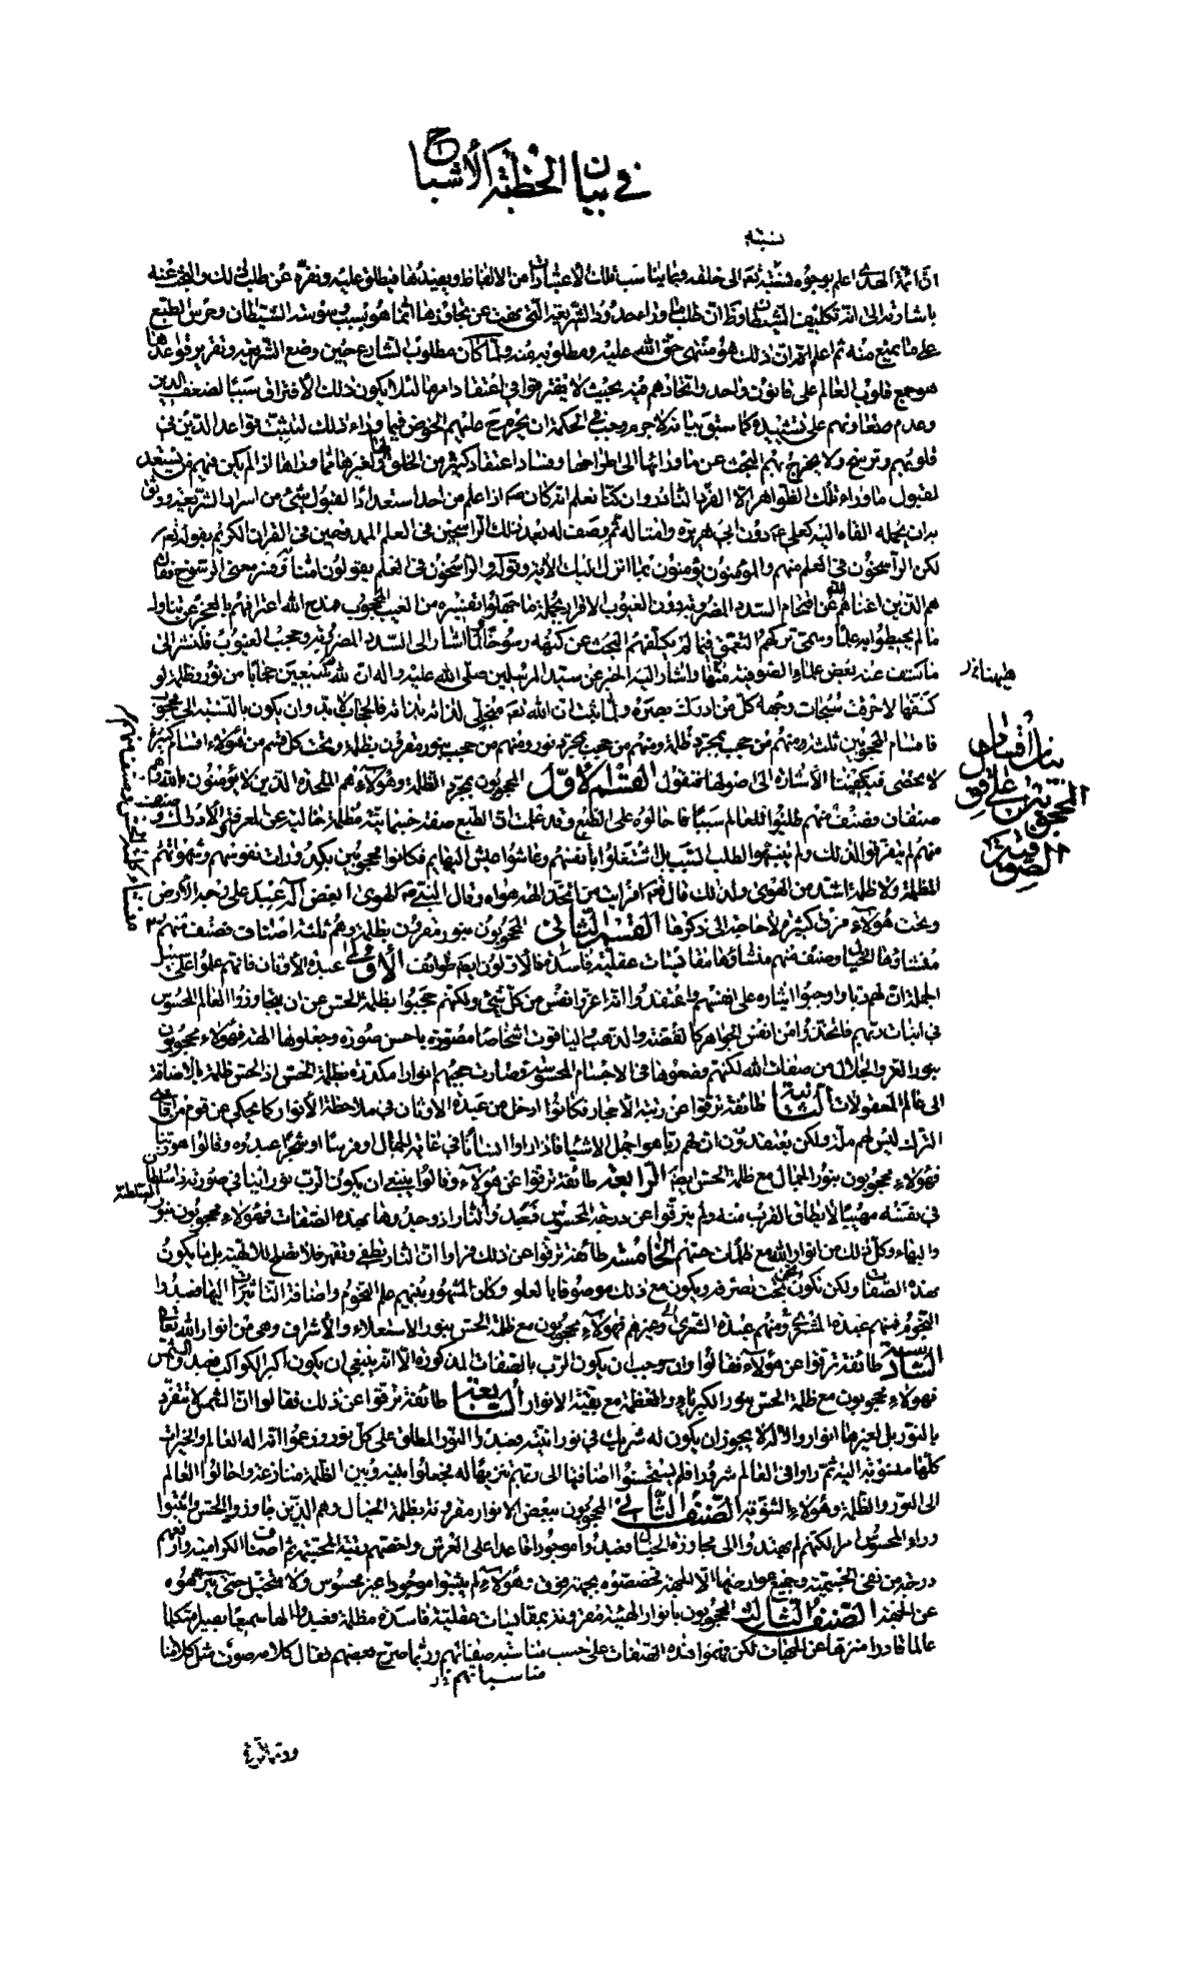 في بيان الخطبة الأشباح
نسبته
ان ائمة الهدى اعلم بوجوه نسبته تعالى الى خلقه وبما يناسب تلك الاعتبارات من الالفاظ ويفيدها فيطلق عليه ونفره عن طلب ذلك والبحث عنه
باشارته الى انه تكليف الشيطان وظ ان طلب ما وراء حدود الشريعة التي نهيت عن تجاوزها انما هو بسبب وسوسة الشيطان وحرص الطبع
على ما يمنع منه ثم اعلم انه ان ذلك هو منتهى حق الله عليه ومطلوبه منه ولما كان مطلوب الشارع حين وضع الشريعة وتقرير قواعدها
هو جمع قلوب العالم على قانون واحد واتحادهم فيه بحيث لا يفترقوا في اعتقاد امر ما لئلا يكون ذلك الافتراق سببا لضعف الدين
وعدم تعاونهم على تشييده كما سبق بيانه لا جرم وجب في الحكمة ان يحرم عليهم الخوض فيما وراء ذلك لتثبت قواعد الدين في
قلوبهم وترسخ ولا يخرج بهم البحث عن ما ورائها الى اطراحها وفساد اعتقاد كثير من الخلق لها ولغيرها مما وراها اذا لم يكن فيهم من يستعد
لقبول ما وراء تلك الظواهر الا الفرد الشاذ وان كنا نعلم انه كان ص اذا علم من احد استعدادا لقبول شئ من اسرار الشريعة ووثق
بان يحمله القاه اليه كعلى ع دون ابي هريرة وامثاله ثم وصف له بعد ذلك الراسخين في العلم الممدوحين في القران الكريم بقوله تعم
لكن الراسخون في العلم منهم والمؤمنون يؤمنون بما انزل اليك الاية وقوله والراسخون في العلم يقولون امنا به وفسر معنى الرسوخ فقال
هم الذين اغناهم الله عن اقتحام السدد المضروبة دون الغيوب الاقرار بجملة ما جهلوا تفسيره من الغيب المحجوب فمدح الله اعترافهم بالعجز عن تناول
ما لم يحيطوا به علما وسمى تركهم التعمق فيما لم يكلفهم البحث عن كنهه رسوخا ولما اشار الى السدد المضروبة وحجب الغيوب فلنشر الى
ما ثبت عند بعض علماء الصوفية فيها واشار اليه الخبر عن سيد المرسلين صلى الله عليه واله ان لله سبعين حجابا من نور وظلمة لو
كشفها لاحرقت سبحات وجهه كل من ادرك بصره ولما ثبت ان الله تعم متجلى لذاته بذاته فالحجاب لا بد وان يكون بالنسبة الى محجوب
فاقسام المحجوبين ثلثة ومنهم من حجب بمجرد ظلمة ومنهم من حجب بمجرد نور ومنهم من حجب بنور مقرون بظلمة وتحت كل قسم من هؤلاء اقسام كثيرة
لا تحصى فيكفينا الاشارة الى اصولها فنقول القسم الاول المحجوبون بمجرد الظلمة وهؤلاء هم الملحدة الذين لا يؤمنون بالله وهم
صنفان فصنف منهم طلبوا للعالم سببا فاحالوه على الطبع وقد علمت ان الطبع صفة جسمانية مظلمة خالية عن المعرفة والادراك وصنف
منهم لم يتفرغوا لذلك ولم ينبهوا لطلب السبب بل اشتغلوا بانفسهم وعاشوا عيش البهايم فكانوا محجوبين بكدورات نفوسهم وشهواتهم
المظلمة ولا ظلمة اشد من الهوى ولذلك قال تعم افرايت من اتخذ الهه هواه وقال النبي ص الهوى ابغض اله عبد على وجه الارض
وتحت هؤلاء فرق كثيرة لا حاجة الى ذكرها القسم الثاني المحجوبون بنور مقرون بظلمة وهم ثلثة اصناف فصنف منهم
منشاؤها الخيال وصنف منهم منشاؤها مقايسات عقلية فاسدة فالاولون ايضا طوائف الاولى عبدة الاوثان فانهم علموا على سبيل
الجملة ان لهم ربا واوجبوا ايثاره على انفسهم واعتقدوا انه اعز وانفس من كل شئ ولكنهم حجبوا بظلمة الحس عن ان يتجاوزوا العالم المحسوس
في اثبات ربهم فاتخذوا من انفس الجواهر كالفضة والذهب والياقوت اشخاصا مصورة باحسن صورة وجعلوها الهة فهؤلاء محجوبون
بنور العز والجلال من صفات الله لكنهم وضعوها في الاجسام المحسوسة فصارت حجبهم انوارا مكدرة بظلمة الحس اذ الحس ظلمة بالاضافة
الى عالم المعقولات الثانية طائفة ترقوا عن رتبة الاحجار فكانوا ادخل من عبدة الاوثان في ملاحظة الانوار كما يحكى عن قوم من اقاصى
الترك ليس لهم ملة ولكن يعتقدون ان لهم ربا هو اجمل الاشياء فاذا راوا انسانا في غاية الجمال او فرسا او شجرا عبدوه وقالوا هو ربنا
فهؤلاء محجوبون بنور الجمال مع ظلمة الحس ايضا الرابعة طائفة ترقوا عن هؤلاء وقالوا ينبغي ان يكون الرب نورانيا في صورته ذا سلطان
في نفسه مهيبا لا يطاق القرب منه ولم يترقوا عن درجة المحسوس فعبدوا النار اذ وجدوها بهذه الصفات فهؤلاء محجوبون بنور السلطنة
والبهاء وكل ذلك من انوار الله مع ظلمات حسهم الخامسة طائفة ترقوا عن ذلك فراوا ان النار تطفى وتقهر فلا تصلح للالهية بل ما يكون
بهذه الصفات ولكن نكون نحن تحت تصرفه ويكون مع ذلك موصوفا بالعلو وكان المشهور بينهم علم النجوم واضافة التاثيرات اليها فعبدوا
النجوم فمنهم عبدة المشترى ومنهم عبدة الشعرى وغيرهم فهؤلاء محجوبون مع ظلمة الحس بنور الاستعلاء والاشراق وهي من انوار الله تعالى
السادسة طائفة ترقوا عن هؤلاء فقالوا وان وجب ان يكون الرب بالصفات المذكورة الا انه ينبغي ان يكون اكبر الكواكب فعبدوا الشمس
فهؤلاء محجوبون مع ظلمة الحس بنور الكبرياء والعظمة مع بقية الانوار السابعة طائفة ترقوا عن ذلك فقالوا ان الشمس لا تنفرد
بالنور بل لغيرها انوار والاله لا يجوز ان يكون له شريك في نورانيته فعبدوا النور المطلق على كل نور وزعموا انه اله العالم والخيرات
كلها منسوبة اليه ثم راوا في العالم شرورا فلم يستحسنوا اضافتها الى ربهم تنزيها له فجعلوا بينه وبين الظلمة منازعة واحالوا العالم
الى النور والظلمة وهؤلاء الثنوية الصنف الثاني المحجوبون ببعض الانوار مقرونة بظلمة الخيال وهم الذين جاوزوا الحس واثبتوا
وراء المحسوس امرا لكنهم لم يهتدوا الى مجاوزة الخيال فعبدوا موجودا قاعدا على العرش واخسهم رتبة المجسمة ثم اصناف الكرامية وارفعهم
درجة من نفى الجسمية وجميع عوارضها الا الجهة فخصصوه بجهة فوق وهؤلاء لم يثبتوا موجودا غير محسوس ولا متخيل حتى ينزهوه
عن الجهة الصنف الثالث المحجوبون بانوار الهية مقرونة بمقايسات عقلية فاسدة مظلمة فعبدوا الها سميعا بصيرا متكلما
عالما قادرا منزها عن الجهات لكن فهموا هذه الصفات على حسب مناسبة صفاتهم وربما صرح بعضهم فقال كلامه صوت مثل كلامنا
مناسباتهم
هيهنا
بيان اقسام
المحجوبين على ذوق
الصوفية